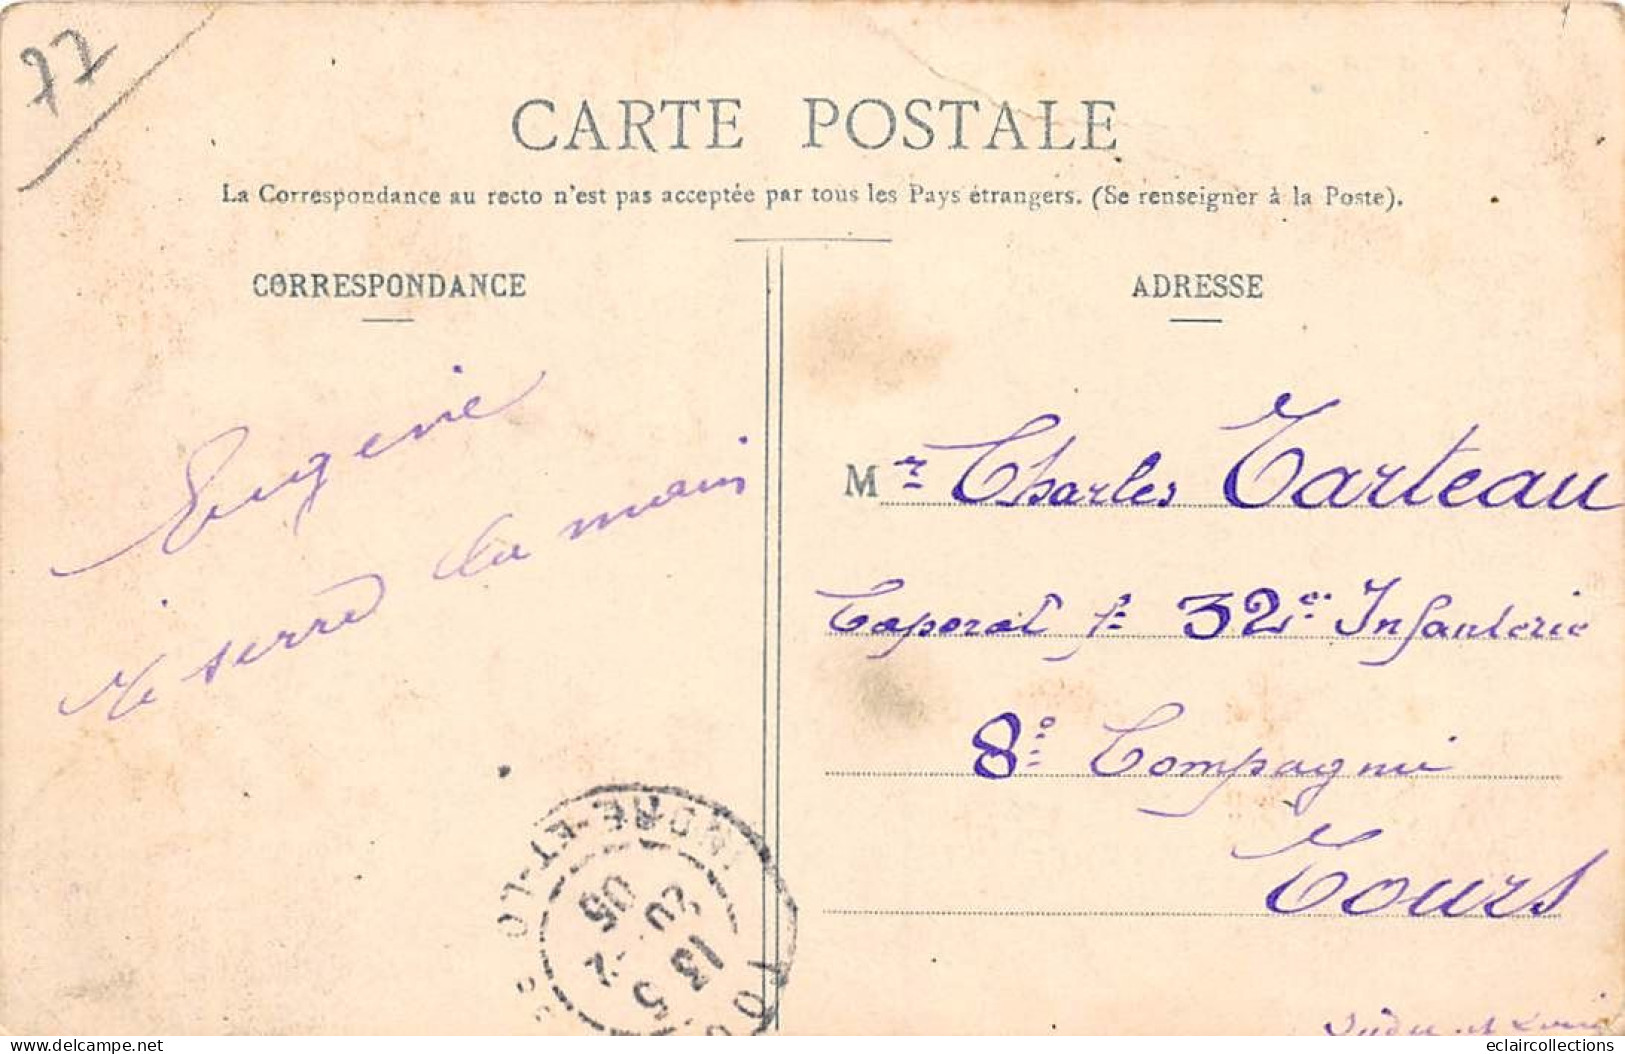 77
CARTE POSTALE
La Correspondance au recto n'est pas acceptée par tous les Pays étrangers. (Se renseigner à la Poste).
CORRESPONDANCE
Eugenie
serre la main
ADRESSE
Mr Charles Tarteau
Caporal f. 32e Infanterie
8e Compagnie
Tours
Indre et Loire
INDRE-ET-LO
13 5
20 -2
05
https://www.delcampe.net
eclaircollections